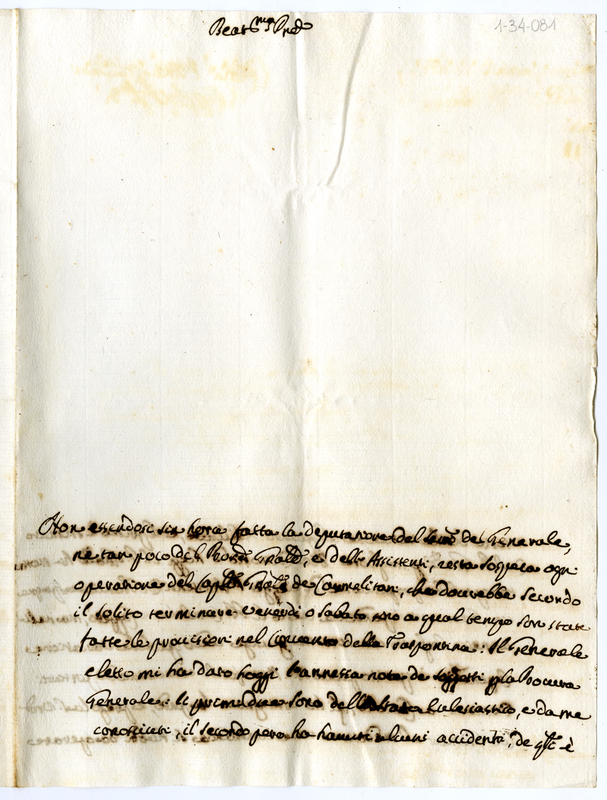 Beat.mo Pre
1-34-081
Non essendosi sin hora fatta la deputatione del del Generale,
ne tan poco del Gnale, e delli Assistenti, resta sospesa ogni
operatione del Caplo Gnale de Carmelitani, che dovrebbe secondo
il solito terminare venerdi o sabato sino a qual tempo son state
fatte le provisioni nel Convento della Traspontina: Il Generale
eletto mi ha dato hoggi l'annessa nota de soggetti p la Procura
Generale: li primi due sono dello stato Eclesiastico, e da me
conosciuti, il secondo pero ha havuti alcuni accidenti, de qli è